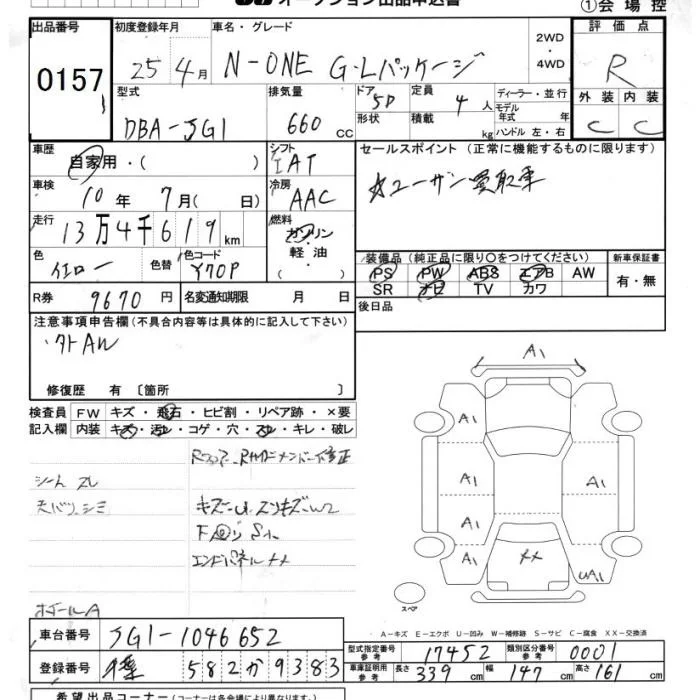 オークション出品申込書
①会場控
出品番号 初度登録年月 車名・グレード 2WD・4WD 評価点
0157 25年4月 N-ONE G・Lパッケージ R
型式 排気量 ドア 5D 定員 4人 ディーラー・並行 外装 内装
形状 積載 kg モデル年式 年 ハンドル 左・右
DBA-JG1 660cc C C
車歴 自家用・( ) シフト IAT セールスポイント(正常に機能するものに限ります)
車検 10年7月( 日) 冷房 AAC ☆ユーザー買取車
走行 13万4千619km 燃料 ガソリン 軽油 ( )
色 イエロー 色替 色コード Y70P
装備品(純正品に限り○をつけてください) 新車保証書
PS PW ABS エアB AW 有・無
SR ナビ TV カワ
R券 9670円 名変通知期限 月 日 後日品
注意事項申告欄(不具合内容等は具体的に記入して下さい)
・外AW
修復歴 有 〔箇所 〕
検査員 FW キズ・飛石・ヒビ割・リペア跡・×要
記入欄 内装 キズ・汚レ・コゲ・穴・スレ・キレ・破レ
シート スレ
天バリ シミ
エンドパネルXX
ホイールA
A1
A1
A1 A1
A1
XX
UA1
スペア
A-キズ E-エクボ U-凹み W-補修跡 S-サビ C-腐食 XX-交換済
車台番号 JG1-1046652
型式指定番号参考 17452 類別区分番号参考 0001
登録番号 582か9383
車庫証明用参考 長さ 339cm 幅 147cm 高さ 161cm
希望出品コーナー(コーナーは各会場により異なります)